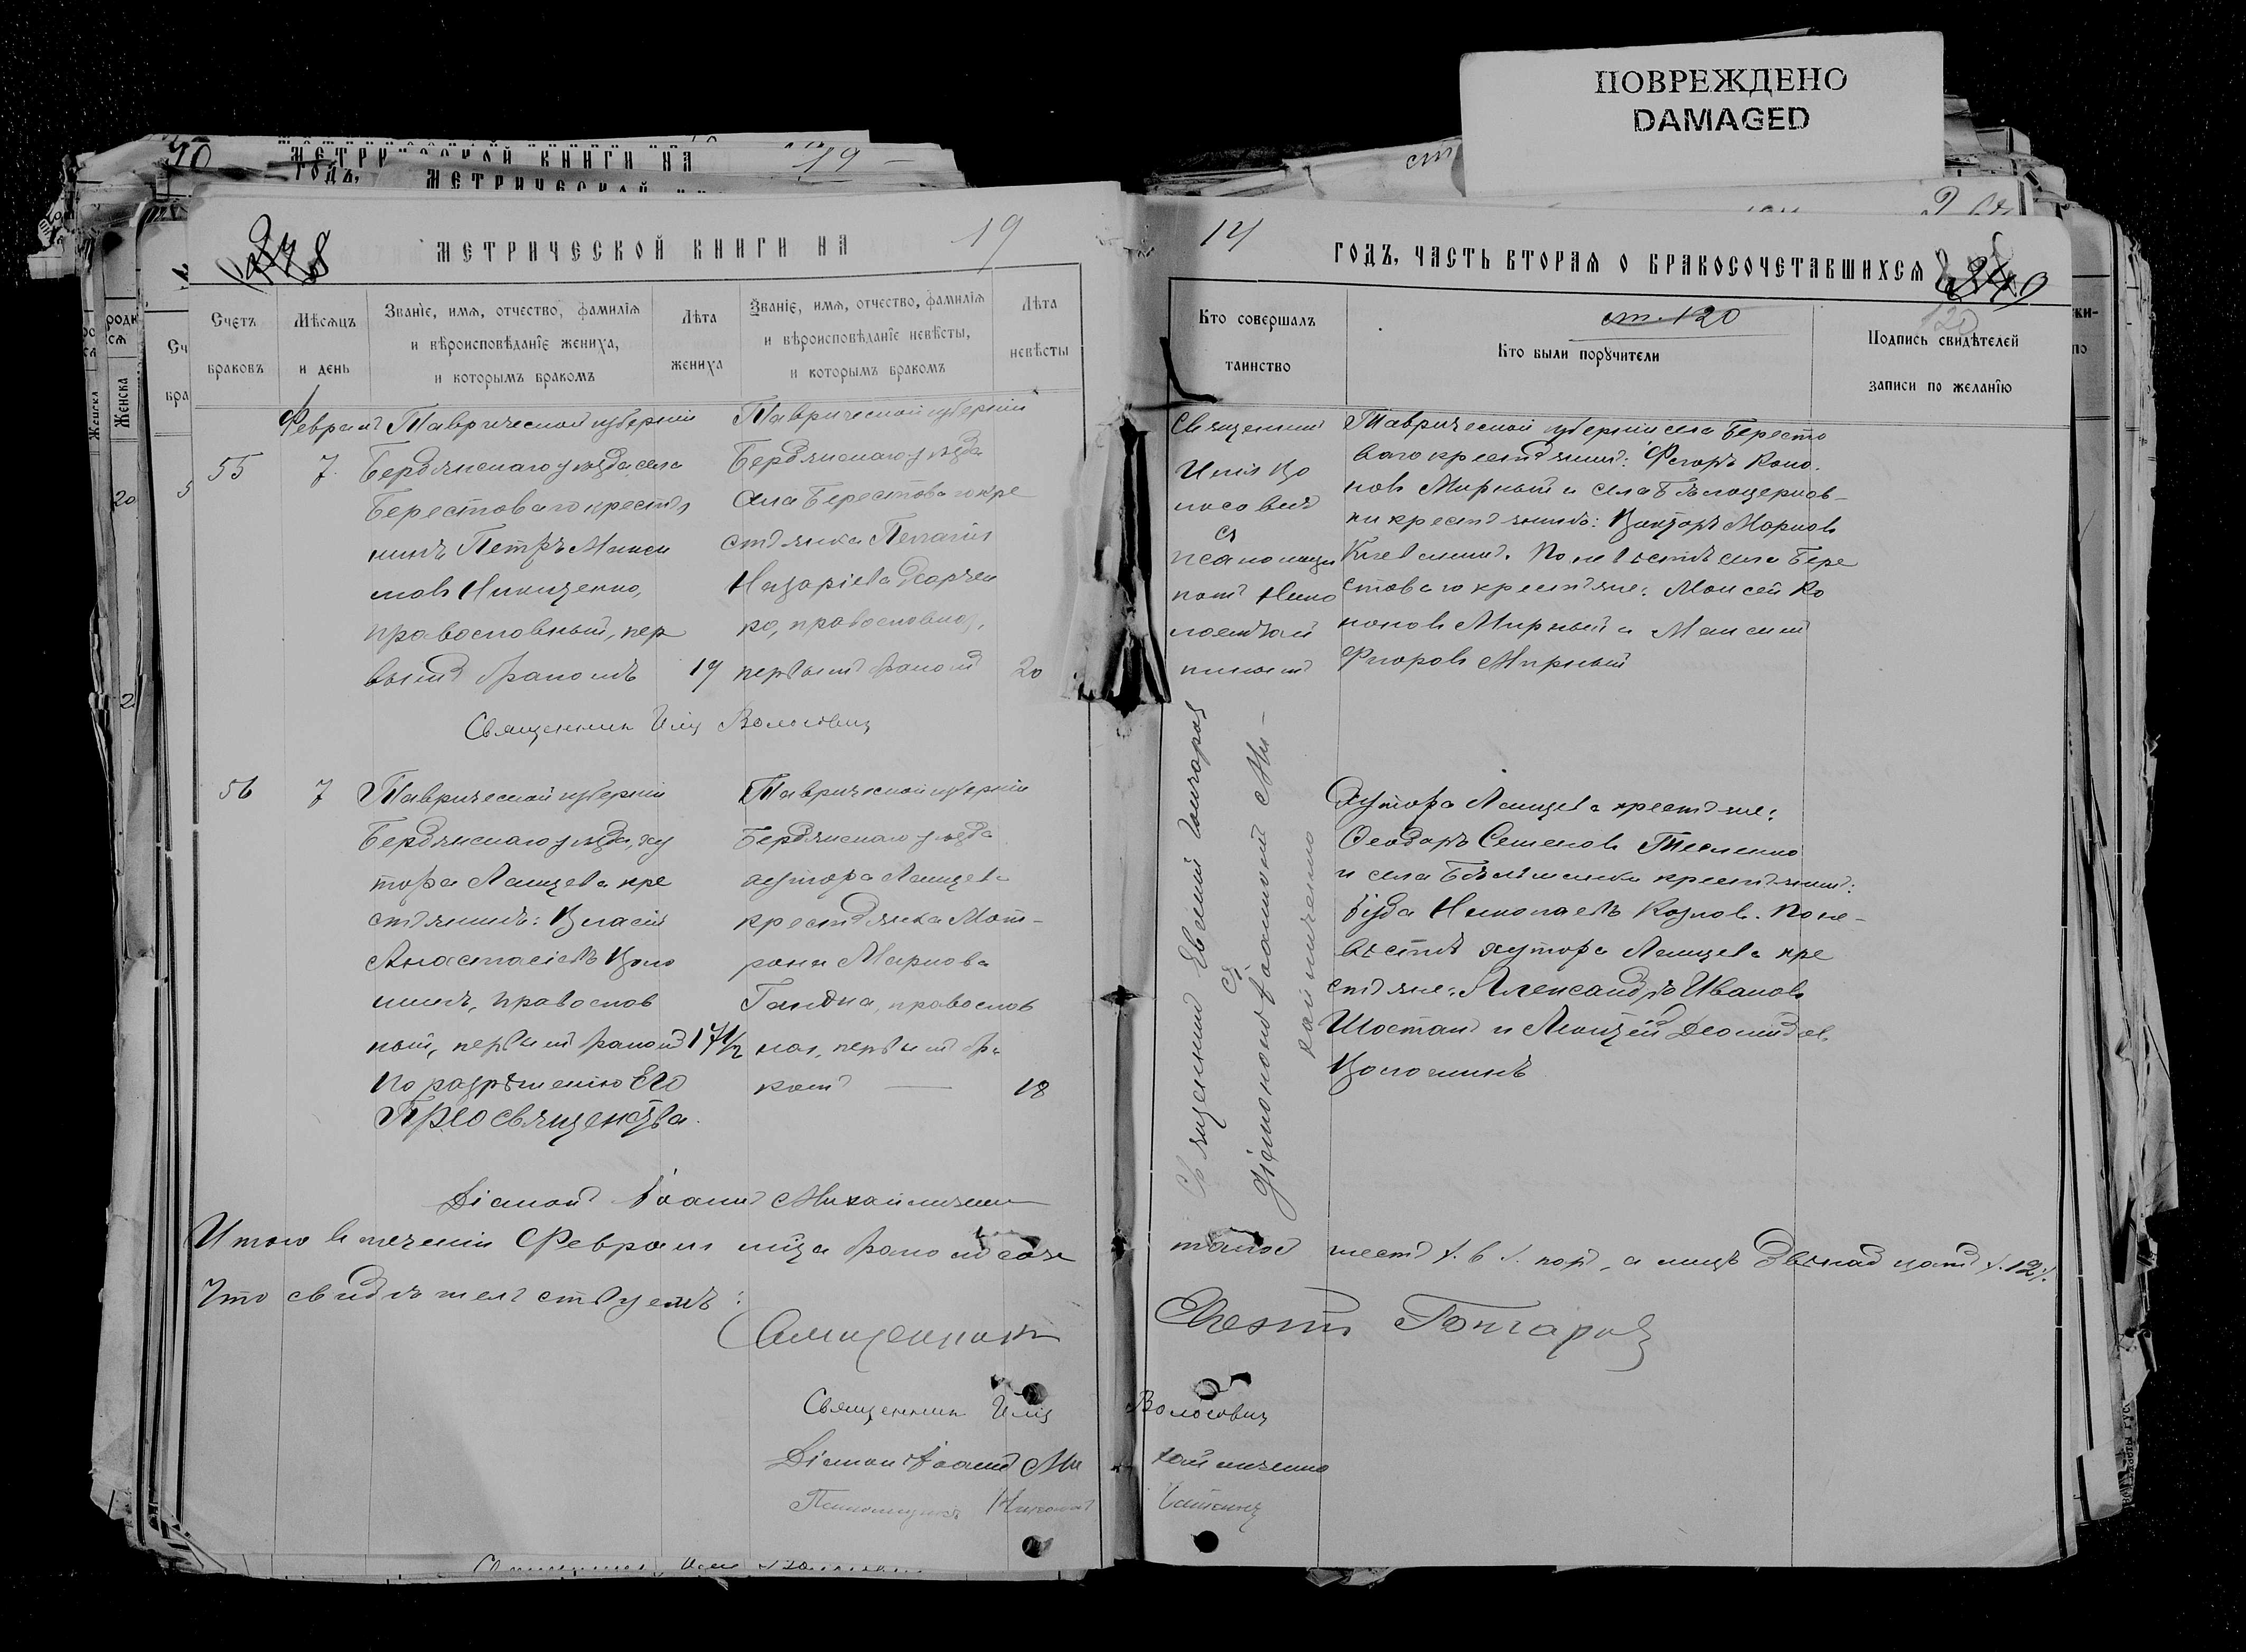 ПОВРЕЖДЕНО
DAMAGED
МЕТРИЧЕСКОЙ КНИГИ НА 19
14 ГОДЪ, ЧАСТЬ ВТОРАЯ О БРАКОСОЧЕТАВШИХСЯ
Счетъ браковъ
Мѣсяцъ и день
Званіе, имя, отчество, фамилія
и вѣроисповѣданіе жениха,
и которымъ бракомъ
Лѣта жениха
Званіе, имя, отчество, фамилія
и вѣроисповѣданіе невѣсты,
и которымъ бракомъ
Лѣта невѣсты
Кто совершалъ таинство
ст. 120
Кто были поручители
Подпись свидѣтелей
записи по желанію
120
55
Февраль
7.
Таврической губерніи
Бердянскаго уѣзда села
Берестоваго крестья
нинъ Петръ Макси
мовъ Никиценко,
православный, пер
вымъ бракомъ
19
Таврической губерніи
Бердянскаго уѣзда
села Берестоваго кре
стьянка Пелагія
Назаріева Харчен
ко, православная,
первымъ бракомъ
20
Священникъ
Илія Во
лосовичъ
съ
псаломщи
комъ Нико
лаемъ
Таврической губерніи села Бересто
ваго крестьянинъ: Ѳеодоръ Коно
новъ Мирный и села Бѣлоцерков-
ки крестьянинъ: Викторъ Марковъ
По невѣстѣ села Бере
стоваго крестьяне: Моисей Ко
ноновъ Мирный и Максимъ
Ѳеодоровъ Мирный
Священникъ Илія Волосовичъ
56
7
Таврической губерніи
Бердянскаго уѣзда, ху
тора Ланцева кре
стьянинъ: Власій
Анастасіевъ Воло
шинъ, православ
ный, первымъ бракомъ
По разрѣшенію Его
Преосвященства.
17 1/2
Таврической губерніи
Бердянскаго уѣзда
хутора Ланцева
крестьянка Мат-
рона Маркова
Гандка, православ
ная, первымъ бра
комъ
18
Священникъ Евгеній Гончаровъ
съ
діакономъ Іоанномъ Ми-
хайличенко
Хутора Ланцева крестьяне:
Ѳеодоръ Семеновъ Тесленко
и села Бѣльманки крестьянинъ:
Іуда Николаевъ Козловъ. По не-
вѣстѣ хутора Ланцева кре
стьяне: Александръ Ивановъ
Шостакъ и Диомидовъ
Волошинъ
Діаконъ Іоаннъ Михайличенко
Итого въ теченіи Февраля м-ца браковъ соче
талось шесть /. 6 ./. паръ, а лицъ двѣнадцать /. 12 ./.
Что свидѣтельствуемъ:
Священникъ Евгеній Гончаровъ
Священникъ Илія Волосовичъ
Діаконъ Іоаннъ Михайличенко
Псаломщикъ Николай